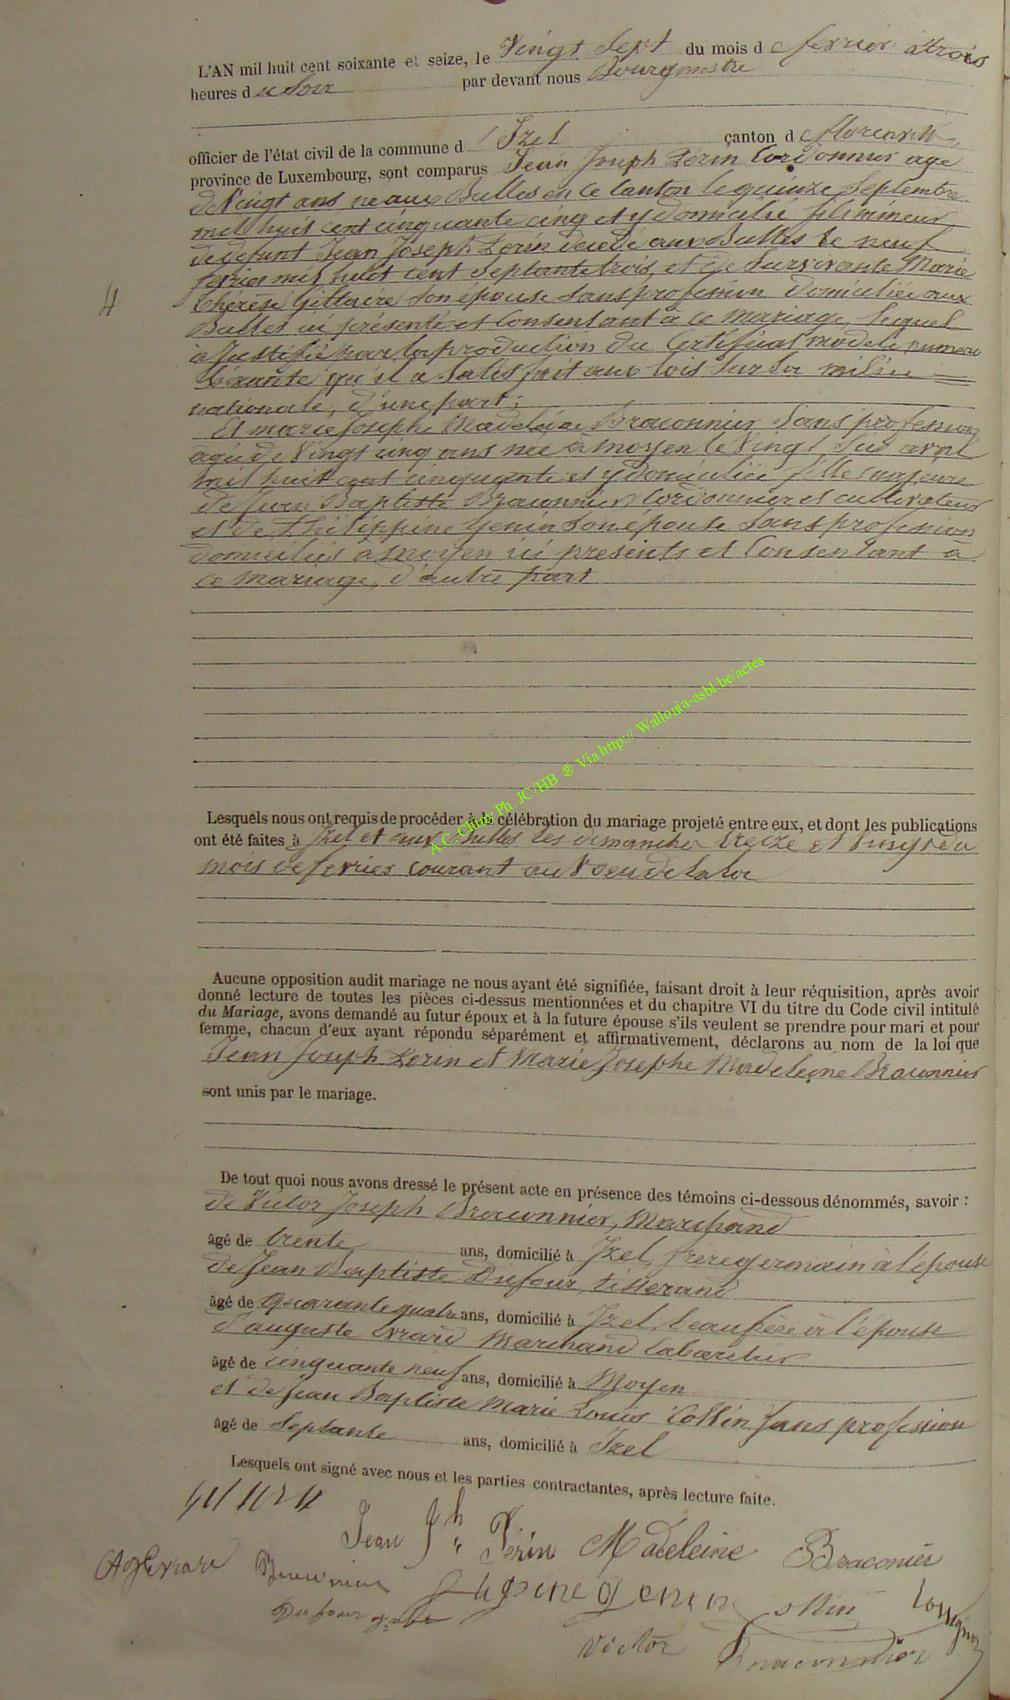 L'AN mil huit cent soixante et seize, le Vingt Sept du mois d e fevrier a trois
heures d u Soir par devant nous Bourgmestre
officier de l'état civil de la commune d' Izel canton d e florenville
province de Luxembourg, sont comparus Jean Joseph Perin Cordonnier agé
de Vingt ans né aux Bulles en ce Canton le quinze Septembre
mil huit cent cinquante cinq et y domicilié fils mineur
de defunt Jean Joseph Perin décédé aux Bulles le neuf
fevrier mil huit cent Septante trois, et de Survivante Marie
therèse Gillaire Son épouse Sans profession domiciliée aux
Bulles ici présente et Consentant à ce mariage, lequel
a Justifié par la production du Certificat modele numero
Soixante qu'il a Satisfait aux lois Sur la milice
nationale, d'une part;
Et marie Josephe Madeleine Braconnier Sans profession
agée de Vingt cinq ans née à moyen le Vingt Six avril
mil huit cent cinquante et y domiciliée fille majeure
de Jean Baptiste Braconnier Cordonnier et cultivateur
et de Philippine Genin Son épouse Sans profession
domiciliés à moyen ici presents et Consentant à
ce mariage, d'autre part
4
A.C. Chiny Ph. JC/HB ® Via http:// Wallonia-asbl.be/actes
Lesquels nous ont requis de procéder à la célébration du mariage projeté entre eux, et dont les publications
ont été faites à Izel et aux Bulles les dimanches treize et Vingt du
mois de fevrier Courant au Voeu de la loi
Aucune opposition audit mariage ne nous ayant été signifiée, faisant droit à leur réquisition, après avoir
donné lecture de toutes les pièces ci-dessus mentionnées et du chapitre VI du titre du Code civil intitulé
du Mariage, avons demandé au futur époux et à la future épouse s'ils veulent se prendre pour mari et pour
femme, chacun d'eux ayant répondu séparément et affirmativement, déclarons au nom de la loi que
Jean Joseph Perin et Marie Josephe Madeleine Braconnier
sont unis par le mariage.
De tout quoi nous avons dressé le présent acte en présence des témoins ci-dessous dénommés, savoir :
de Victor Joseph Braconnier, Marchand
âgé de trente ans, domicilié à Izel, frere germain à l'épouse
de Jean Baptiste Dufour, tisserand
âgé de quarante quatre ans, domicilié à Izel, beau frère à l'épouse
d'auguste Evrard Marchand Cabaretier
âgé de cinquante neuf ans, domicilié à Moyen
et de Jean Baptiste Marie Louis Collin Sans profession
âgé de Septante ans, domicilié à Izel
Lesquels ont signé avec nous et les parties contractantes, après lecture faite.
Jean Jh Perin Madeleine Braconier
Aug Evrard Braconnier genin
Dufour
Victor Braconnier